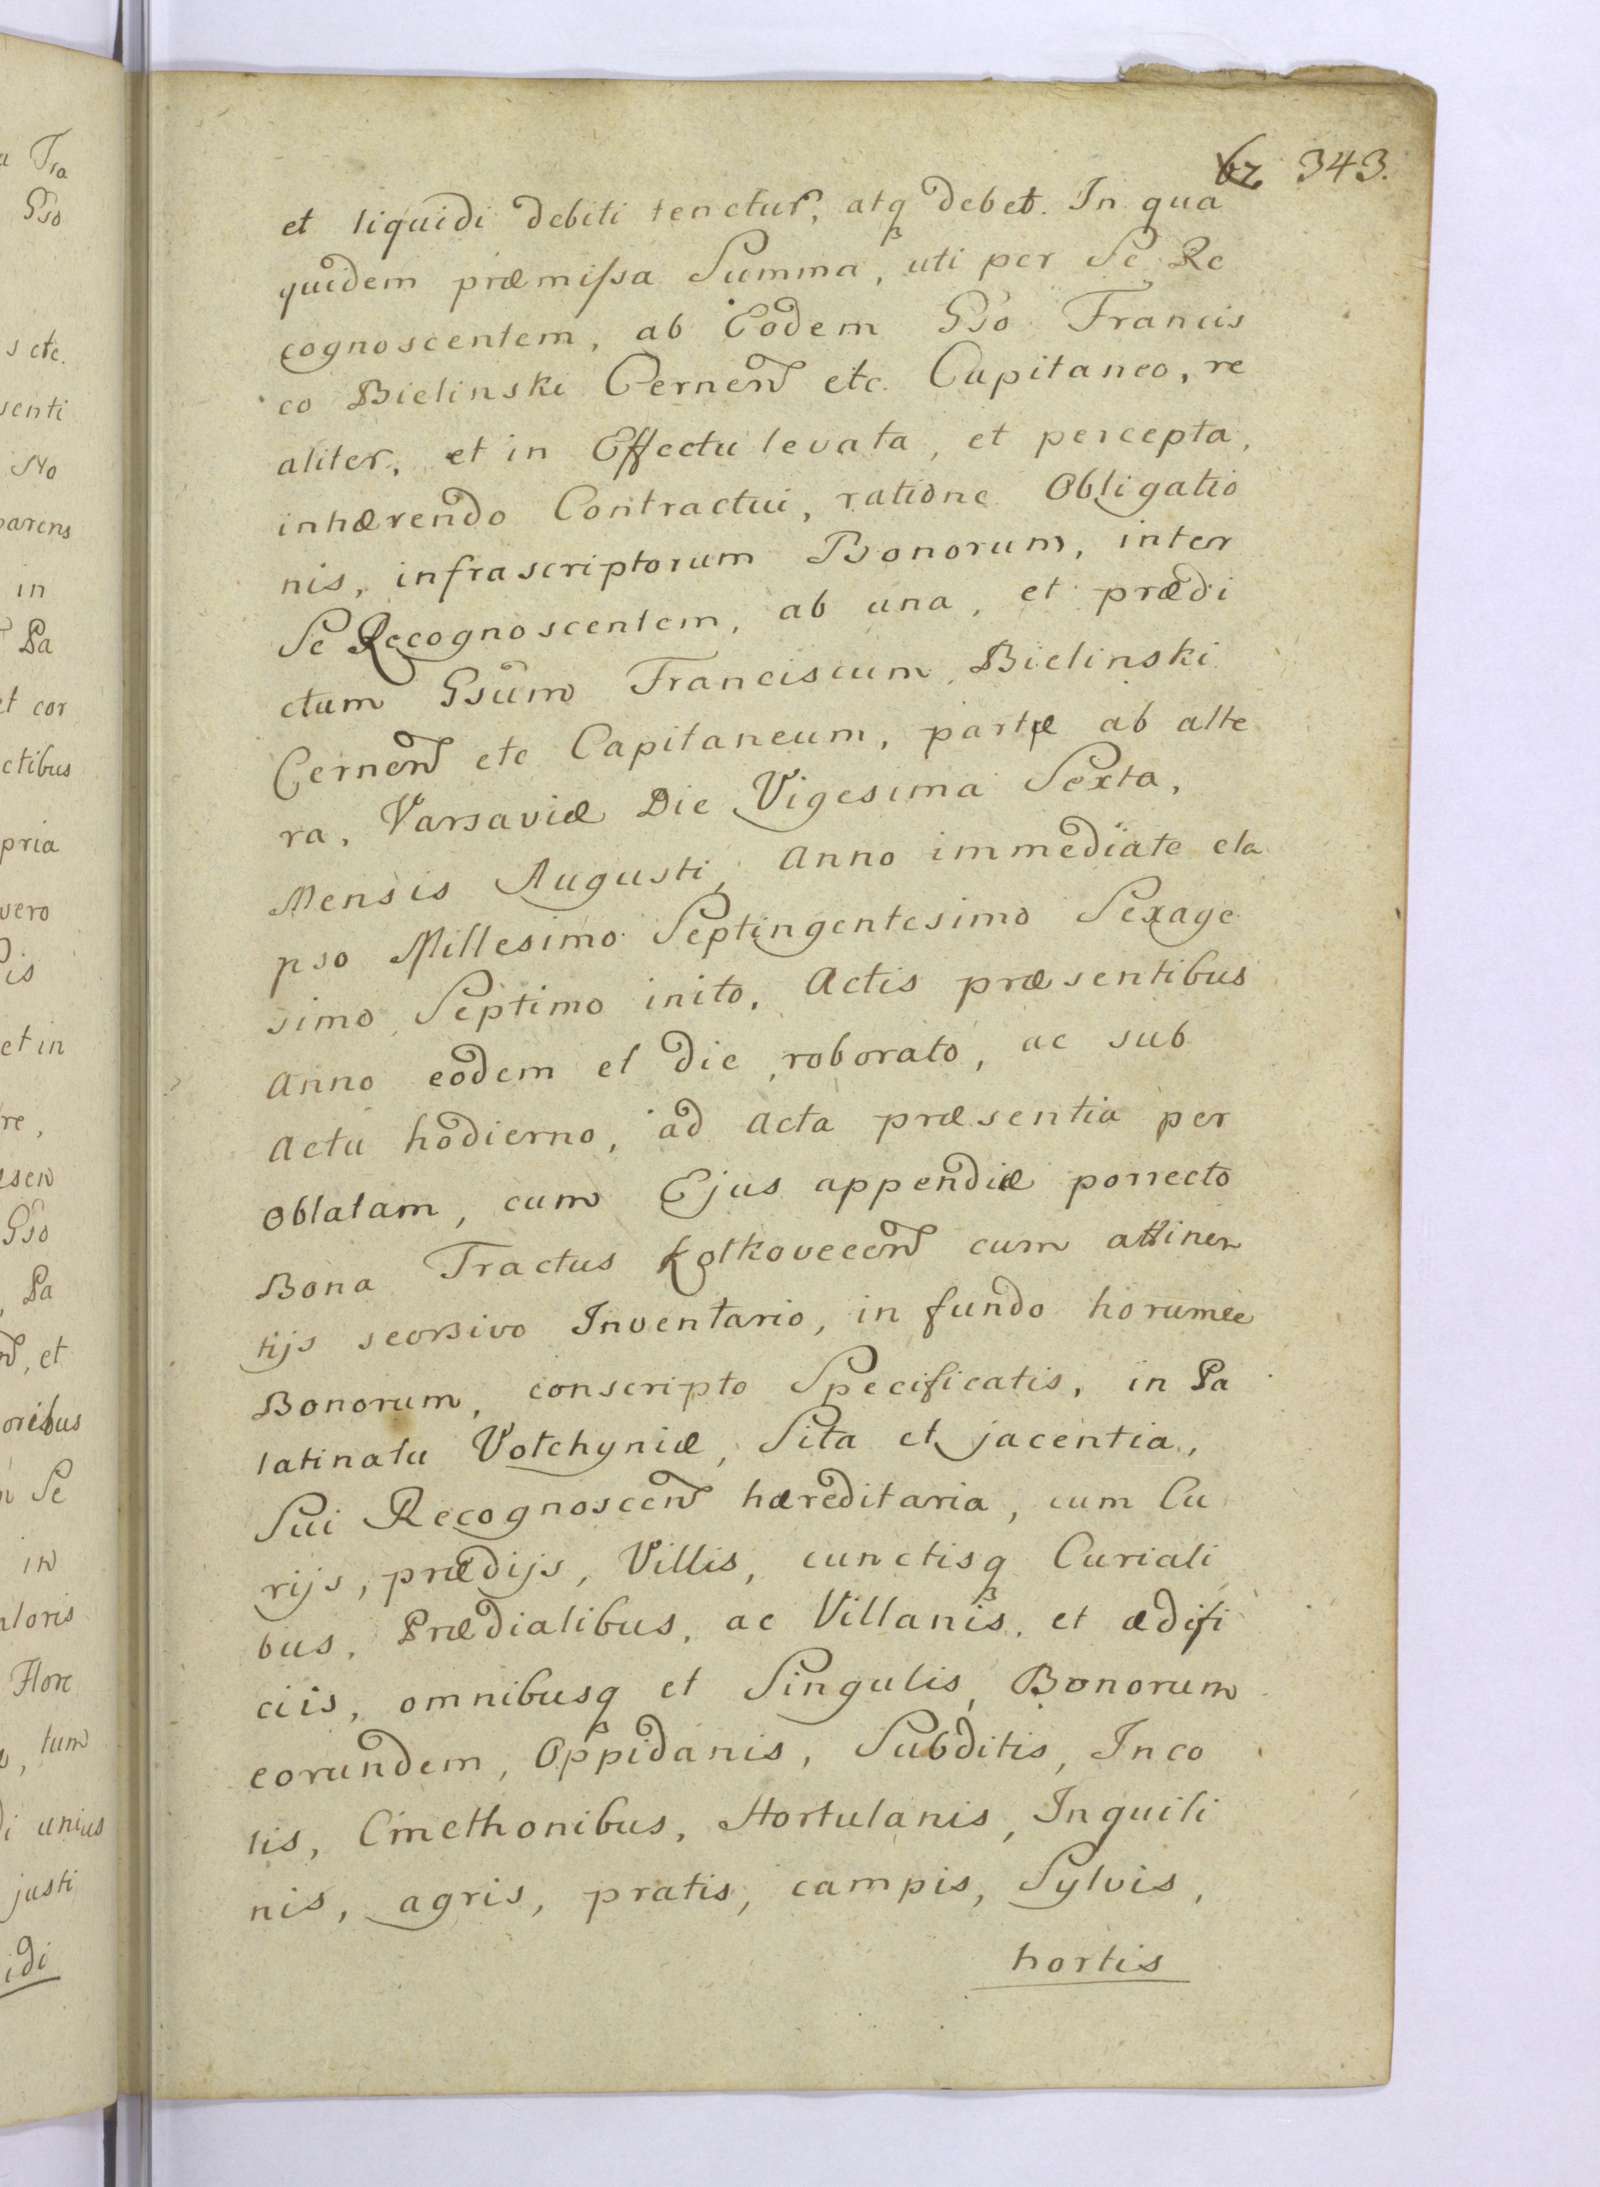 62 343.
et liquidi debiti tenetur, atq debet. In qua
quidem præmissa Summa, uti per Se Re
cognoscentem, ab Eodem Gso Francis
co Bielinski Cernen etc. Capitaneo, re
aliter, et in Effectu levata, et percepta,
inhærendo Contractui, ratione Obligatio
nis, infrascriptorum Bonorum, inter
Se Recognoscentem, ab una, et prædi
ctum Gsum Franciscum Bielinski
Cernen etc Capitaneum, partæ ab alte
ra, Varsaviæ Die Vigesima Sexta,
Mensis Augusti, Anno immediate ela
pso Millesimo Septingentesimo Sexage
simo Septimo inito, Actis præsentibus
Anno eodem et die roborato, ac sub
Actu hodierno, ad Acta præsentia per
Oblatam, cum Ejus appendiæ porrecto
Bona Tractus Kolkoveen cum attinen
tijs seorsivo Inventario, in fundo horumce
Bonorum, conscripto Specificatis, in Pa
latinatu Volchyniæ, Sita et jacentia,
Sui Recognoscen hæreditaria, cum Cu
rijs, prædijs, Villis, cunctisq Curiali
bus, Prædialibus, ac Villanis, et ædifi
ciis, omnibusq et Singulis, Bonorum
eorundem, Oppidanis, Subditis, Inco
lis, Cmethonibus, Hortulanis, Inquili
nis, agris, pratis, campis, Sylvis,
hortis